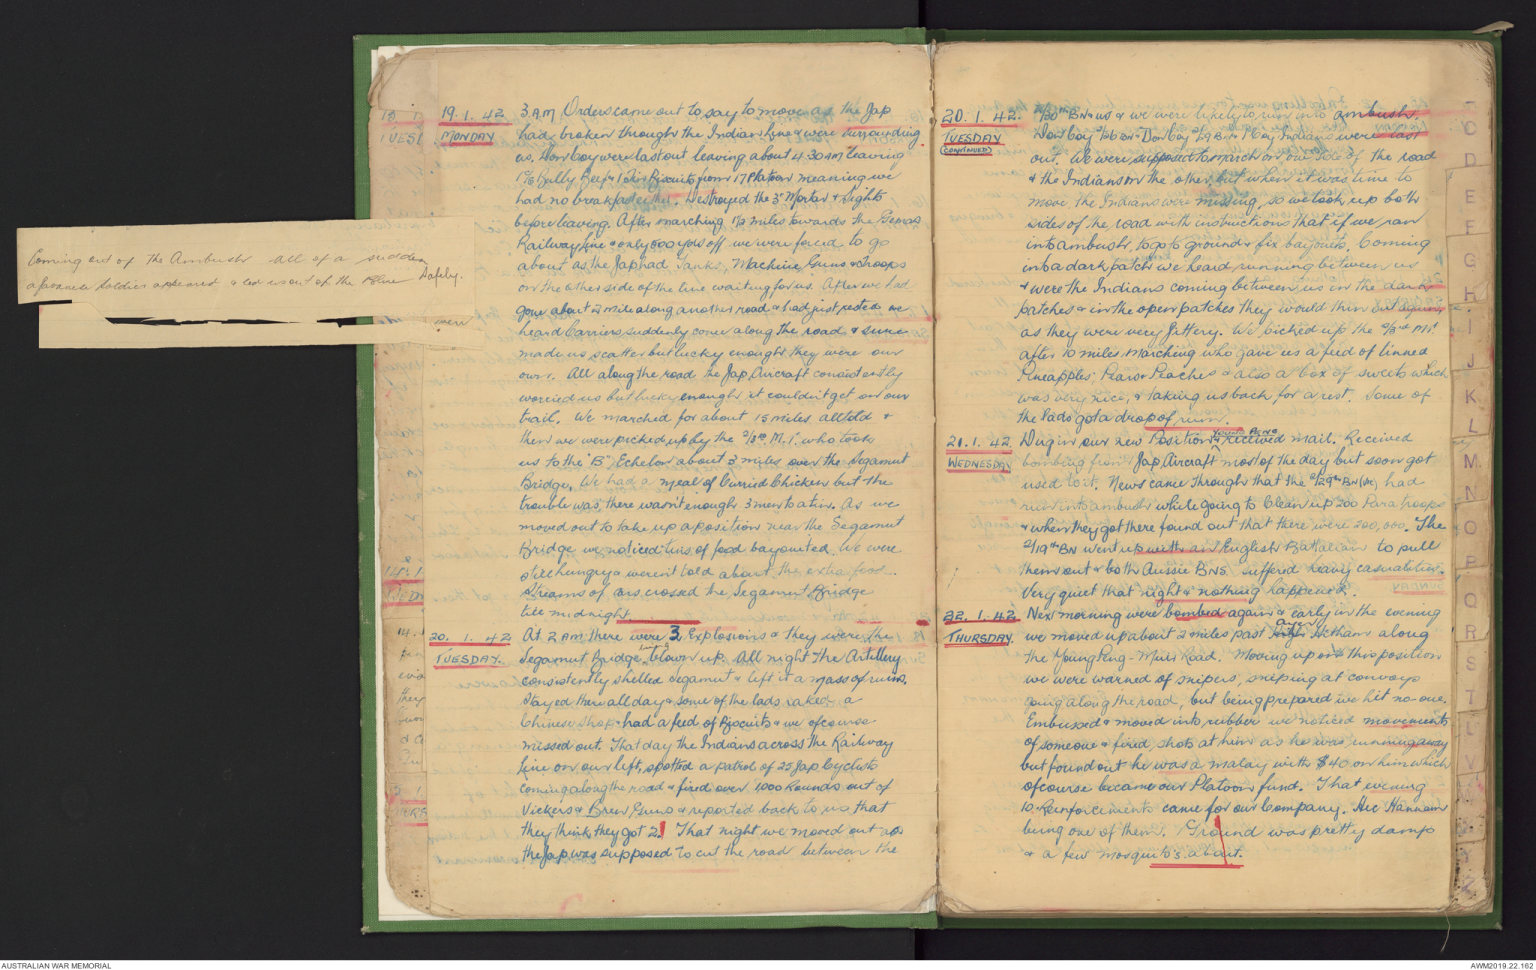 Coming out of the Ambush all of a sudden
a Japanese Soldier appeared & led us out of the Blue safely.
were
19.1.42
MONDAY
3 A.M. Orders came out to say to move as the Jap
had broken through the Indian Line & were surrounding
us. Don Coy were last out leaving about 4.30 AM leaving
Bully Beef & Biscuits from 17 Platoon meaning we
had no breakfast either. Destroyed the 3" Mortar & Sights
before leaving. After marching 1½ miles towards the Gemas
Railway Line & only 500 yds off we were forced to go
about as the Jap had Tanks, Machine Guns & Troops
on the other side of the line waiting for us. After we had
gone about ½ mile along another road & had just rested we
heard Carriers suddenly come along the road & sure
made us scatter but lucky enough they were our
own. All along the road the Jap Aircraft consistently
worried us but lucky enough it couldn't get on our
trail. We marched for about 15 miles all told &
then we were picked up by the 2/3rd M.T. who took
us to the "B" Echelon about 3 miles over the Segamut
Bridge. We had a meal of Curried Chicken but the
trouble was there wasn't enough 3 men to a tin. As we
moved out to take up a position near the Segamut
Bridge we noticed tins of food bayoneted. We were
still hungry & weren't told about the extra food.
Streams of cars crossed the Segamut Bridge
till midnight
20.1.42
TUESDAY.
At 2 AM there were 3 Explosions & they were the
Segamut Bridge being blown up. All night the Artillery
consistently shelled Segamut & left it a mass of ruins.
Stayed there all day & some of the lads raked a
Chinese Shop & had a feed of Biscuits & we of course
missed out. That day the Indians across the Railway
Line on our left, spotted a patrol of 25 Jap Cyclists
coming along the road & fired over 1,000 Rounds out of
Vickers & Bren Guns & reported back to us that
they think they got 2! That night we moved out as
the Jap was supposed to cut the road between the
20.1.42.
TUESDAY
(CONTINUED)
2/30th BN & us & we were likely to run into ambush.
Don Coy 2/26 BN & Don Coy 2/29 BN & 1 Coy Indians were last
out. We were supposed to march on one side of the road
& the Indians on the other but when it was time to
move the Indians were missing, so we took up both
sides of the road with instructions that if we ran
into ambush, to go to ground & fix bayonets. Coming
into a dark patch we heard running between us
& were the Indians coming between us in the dark
patches & in the open patches they would thin out again
as they were very jittery. We picked up the 2/3rd M.T.
after 10 miles marching who gave us a feed of tinned
Pineapples Pears & Peaches & also a box of sweets which
was very nice, & taking us back for a rest. Some of
the lads got a drop of rum.
21.1.42
WEDNESDAY
Dug in our new Position YOUNG PENG & received mail. Received
bombing from Jap Aircraft most of the day but soon got
used to it. News came through that the 2/29th BN (Vic) had
run into ambush while going to clean up 200 Paratroops
& when they got there found out that there were 200,000. The
2/19th BN went up with an English Battalian to pull
them out & both Aussie BNS. suffered heavy casualities.
Very quiet that night & nothing happened.
22.1.42
THURSDAY.
Next morning were bombed again & early in the evening
we moved up about 2 miles past Ayer Hetham along
the Young Peng - Muir Road. Moving up on this position
we were warned of snipers, sniping at convoys
going along the road, but being prepared we hit no-one.
Embussed & moved into rubber we noticed movements
of someone & fired shots at him as he was running away
but found out he was a malay with $40 on him which
of course became our Platoon fund. That evening
10 Reinforcements came for our Company. Arc Hannam
being one of them. Ground was pretty damp
& a few mosquito's about.
C
D
E
F
G
H
I
J
K
L
M
N
O
P
Q
R
S
T
U
V
Y
Z
AUSTRALIAN WAR MEMORIAL
AWM2019.22.162